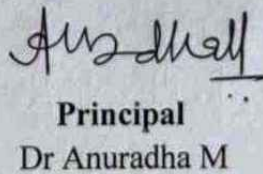 Principal
Dr Anuradha M